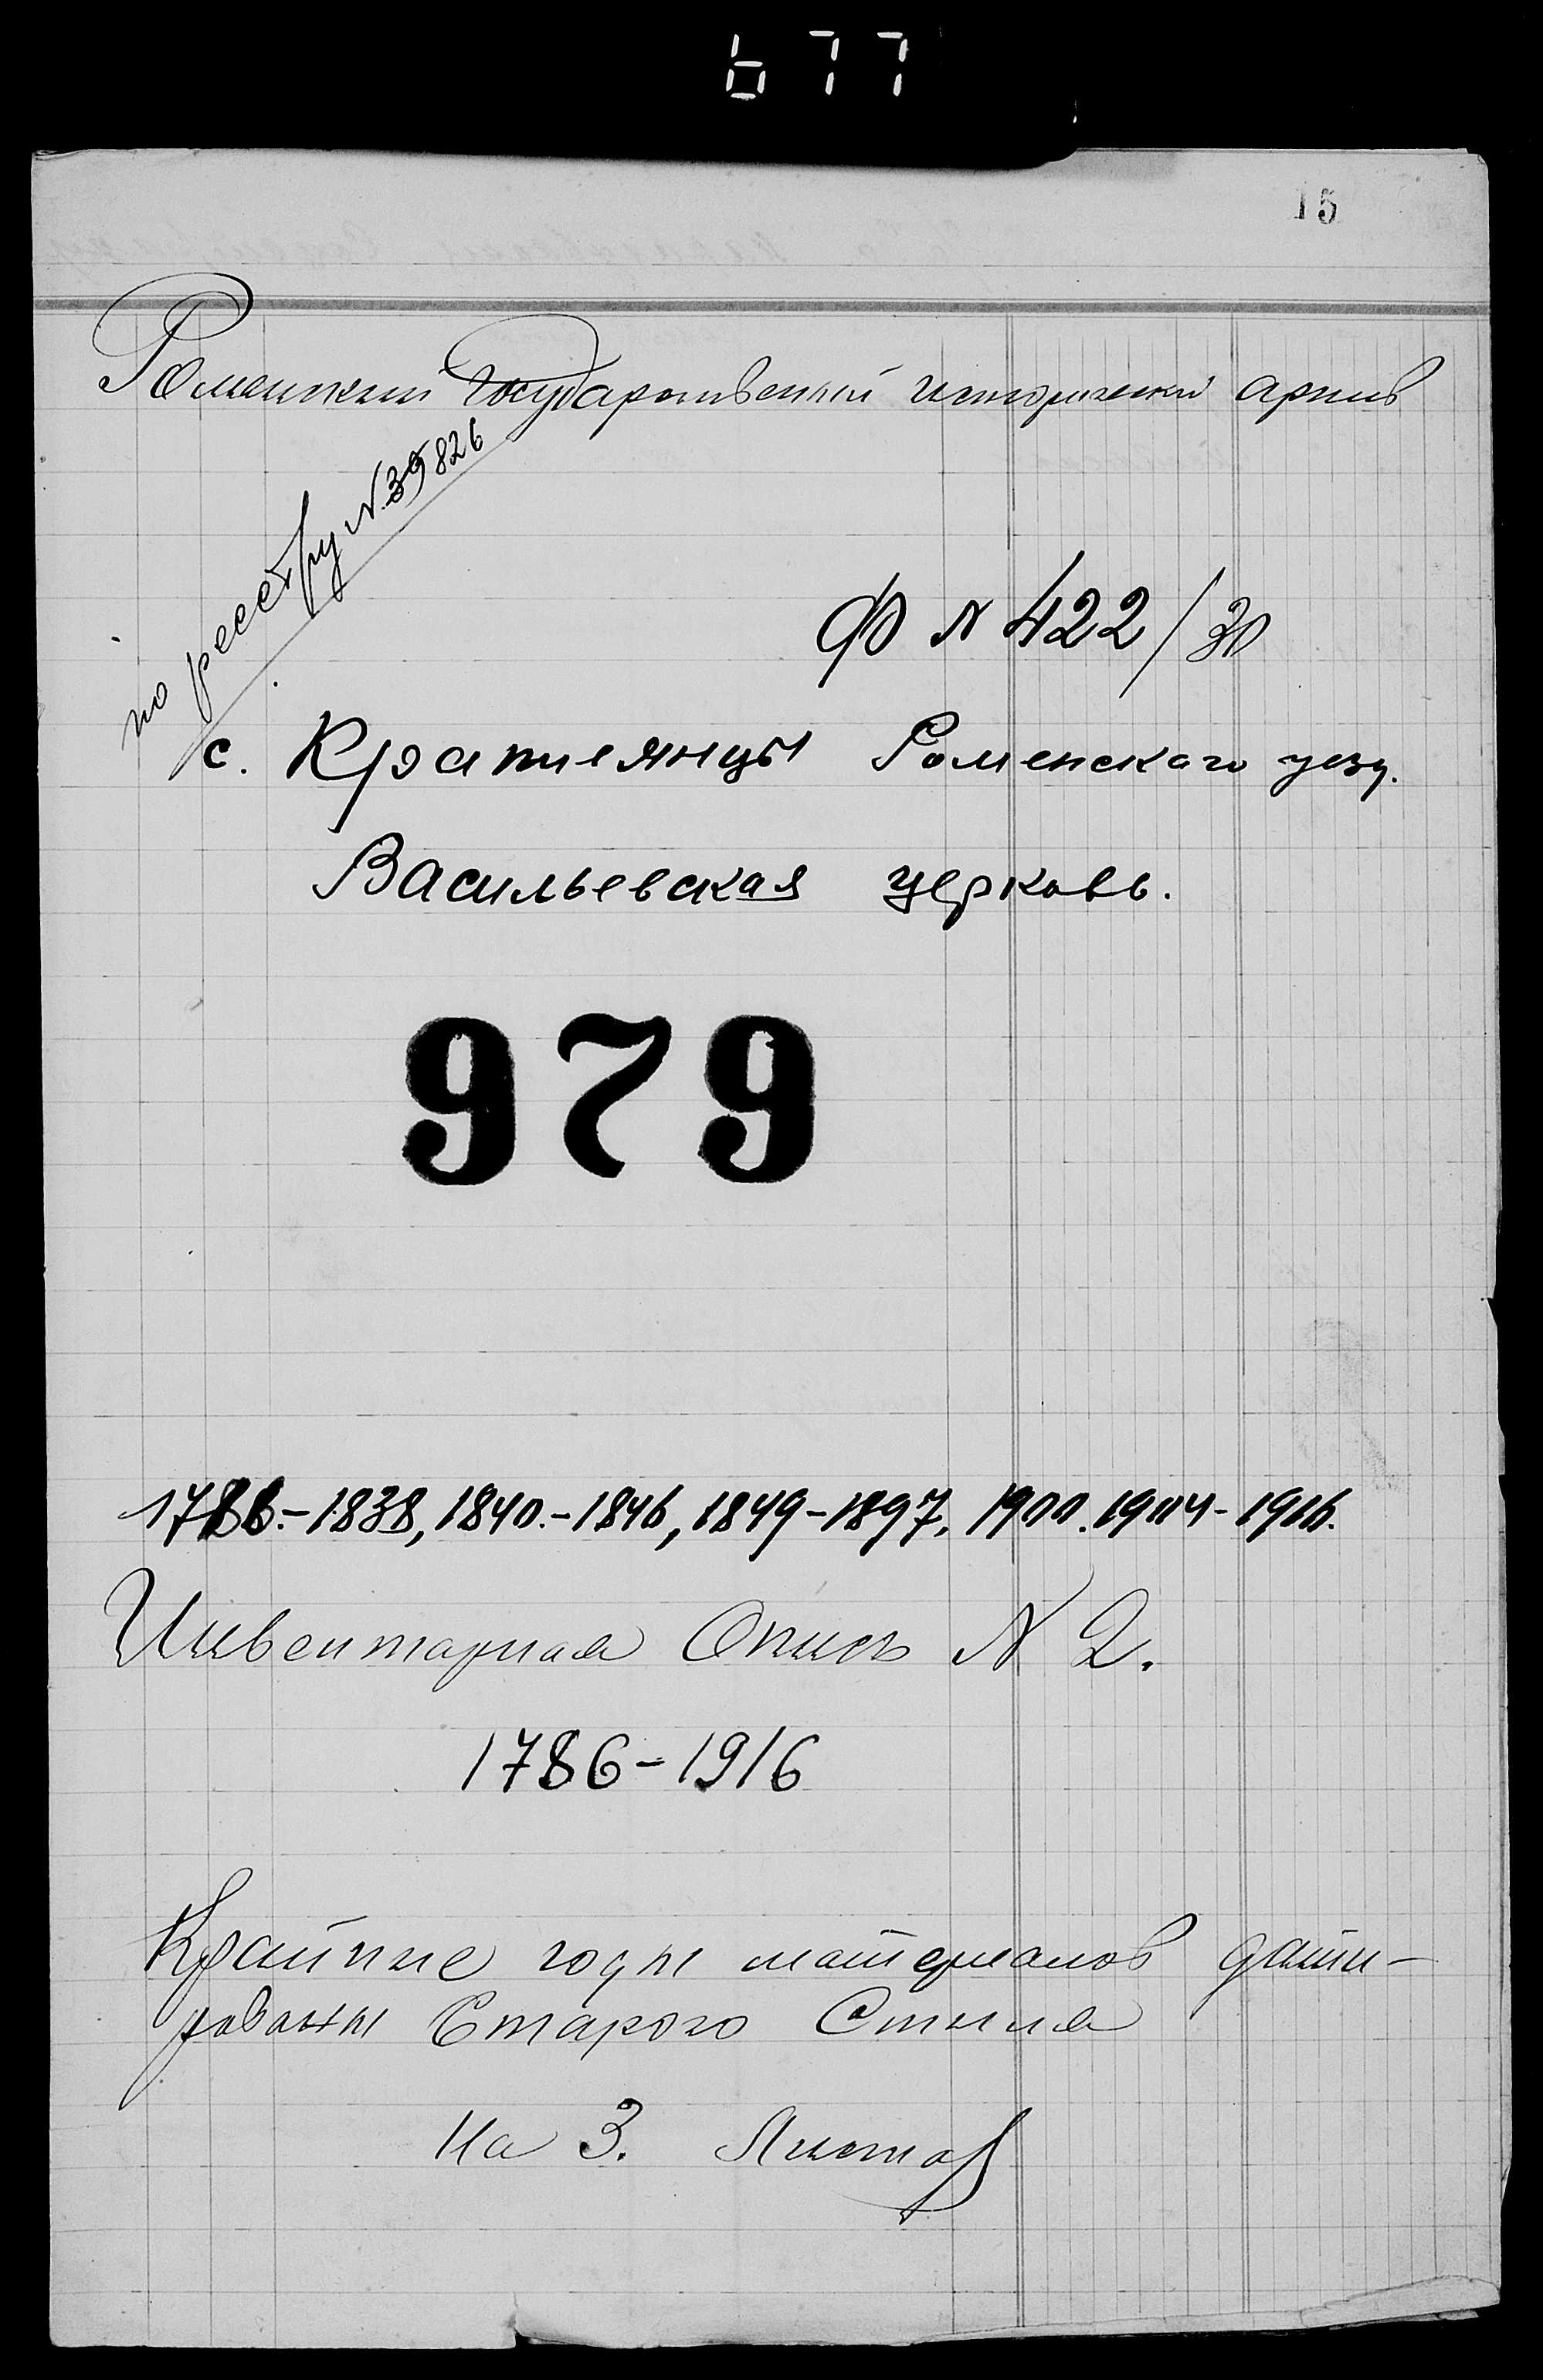 677
15
Роменский Государственный исторический архив
по реестру №. 39826
Ф № 422/30
с. Крапивянцы Роменского уезд.
Васильевская церковь.
979
1786.-1838, 1840.-1846, 1849-1897. 1900. 1904-1916.
Инвентарная Опись № 2.
1786-1916
Крайние годы материалов дати-
рованы Старого Стиля
На 3. Листах